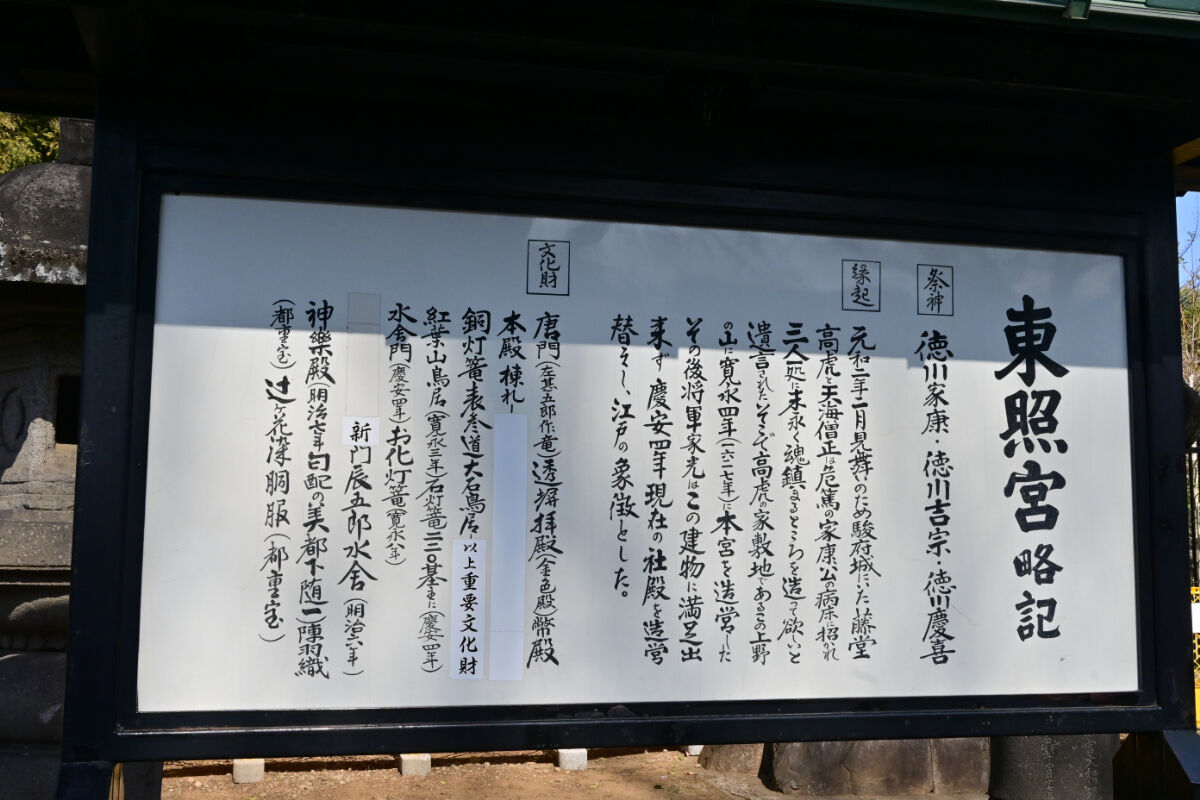 東照宮略記
祭神
徳川家康・徳川吉宗・徳川慶喜
縁起
元和二年二月見舞のため駿府城にいた藤堂
高虎と天海僧正は危篤の家康公の病床に招かれ
三人一処に末永く魂鎮まるところを造って欲しいと
遺言されたいそこで高虎の家敷地であるこの上野
の山に寛永四年(一六二七年)に本宮を造営した
その後将軍家光はこの建物に満足出
来ず慶安四年現在の社殿を造営
替えし、江戸の象徴とした。
文化財
唐門(左甚五郎作竜)透塀拝殿(金色殿)幣殿
本殿棟札
銅灯篭表参道大石鳥居 以上重要文化財
紅葉山鳥居(寛永三年)石灯篭二二〇基主に(慶安四年)
水舎門(慶安四年)お化灯篭(寛永八年)
新門辰五郎水舎(明治六年)
神樂殿(明治七年)匂配の美都下随一)陣羽織
(都重宝)辻ヶ花染胴服(都重宝)